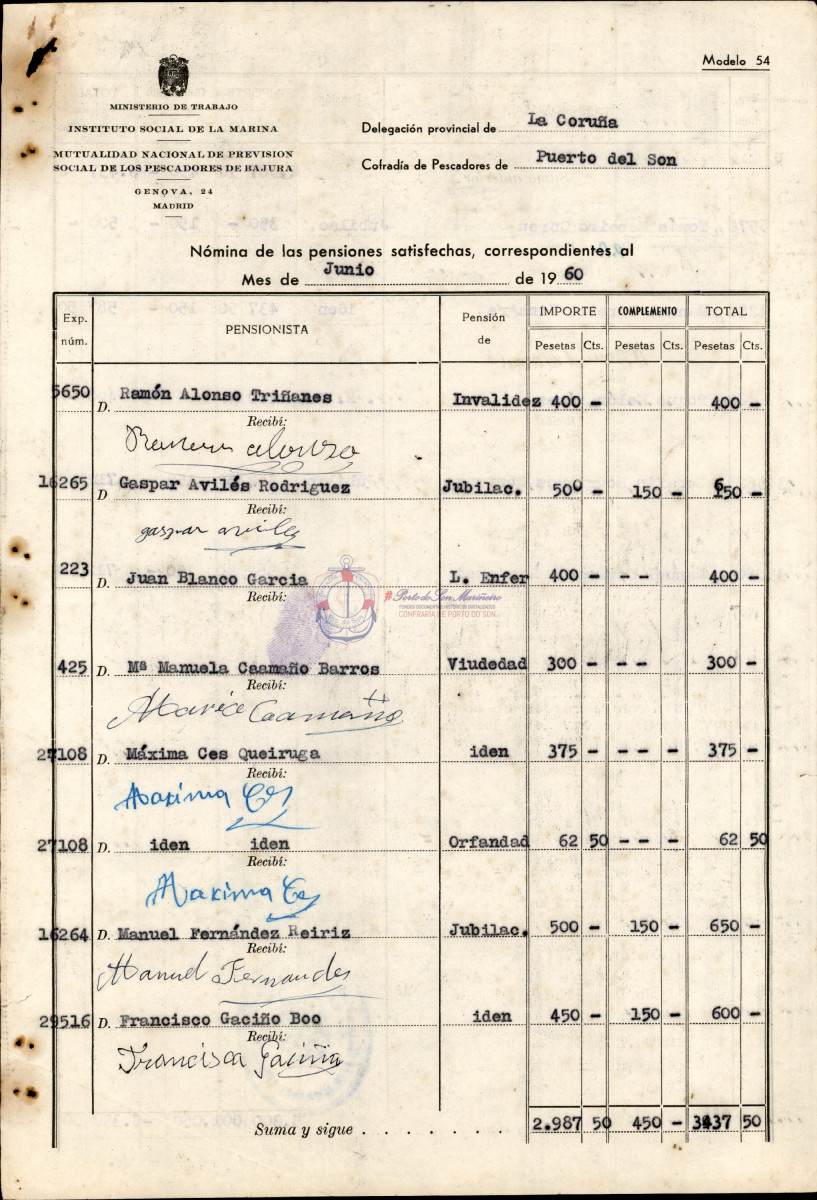 Modelo 54
MINISTERIO DE TRABAJO
INSTITUTO SOCIAL DE LA MARINA
MUTUALIDAD NACIONAL DE PREVISION
SOCIAL DE LOS PESCADORES DE BAJURA
GENOVA, 24
MADRID
Delegación provincial de La Coruña
Cofradía de Pescadores de Puerto del Son
Nómina de las pensiones satisfechas, correspondientes al
Mes de Junio de 1960
Exp. núm. PENSIONISTA Pensión de IMPORTE COMPLEMENTO TOTAL
Pesetas Cts. Pesetas Cts. Pesetas Cts.
5650 D. Ramón Alonso Triñanes Invalidez 400 - 400 -
Recibí:
Ramon Alonso
16265 D Gaspar Avilés Rodriguez Jubilac. 500 - 150 - 650 -
Recibí:
gaspar aviles
223 D. Juan Blanco Garcia L. Enfer 400 - - - 400 -
Recibí:
#Porto do Son Mariñeiro
FONDOS DOCUMENTAIS HISTÓRICOS DIXITALIZADOS
CONFRARÍA DE PORTO DO SON
425 D. Mª Manuela Caamaño Barros Viudedad 300 - - - 300 -
Recibí:
Maria Caamaño
27108 D. Máxima Ces Queiruga iden 375 - - - - 375 -
Recibí:
Maxima Ces
27108 D. iden iden Orfandad 62 50 - - - 62 50
Recibí:
Maxima Ces
16264 D. Manuel Fernández Reiriz Jubilac. 500 - 150 - 650 -
Recibí:
Manuel Fernandes
29516 D. Francisco Gaciño Boo iden 450 - 150 - 600 -
Recibí:
Francisca Gaciña
Suma y sigue . . . . . . . 2.987 50 450 - 3437 50